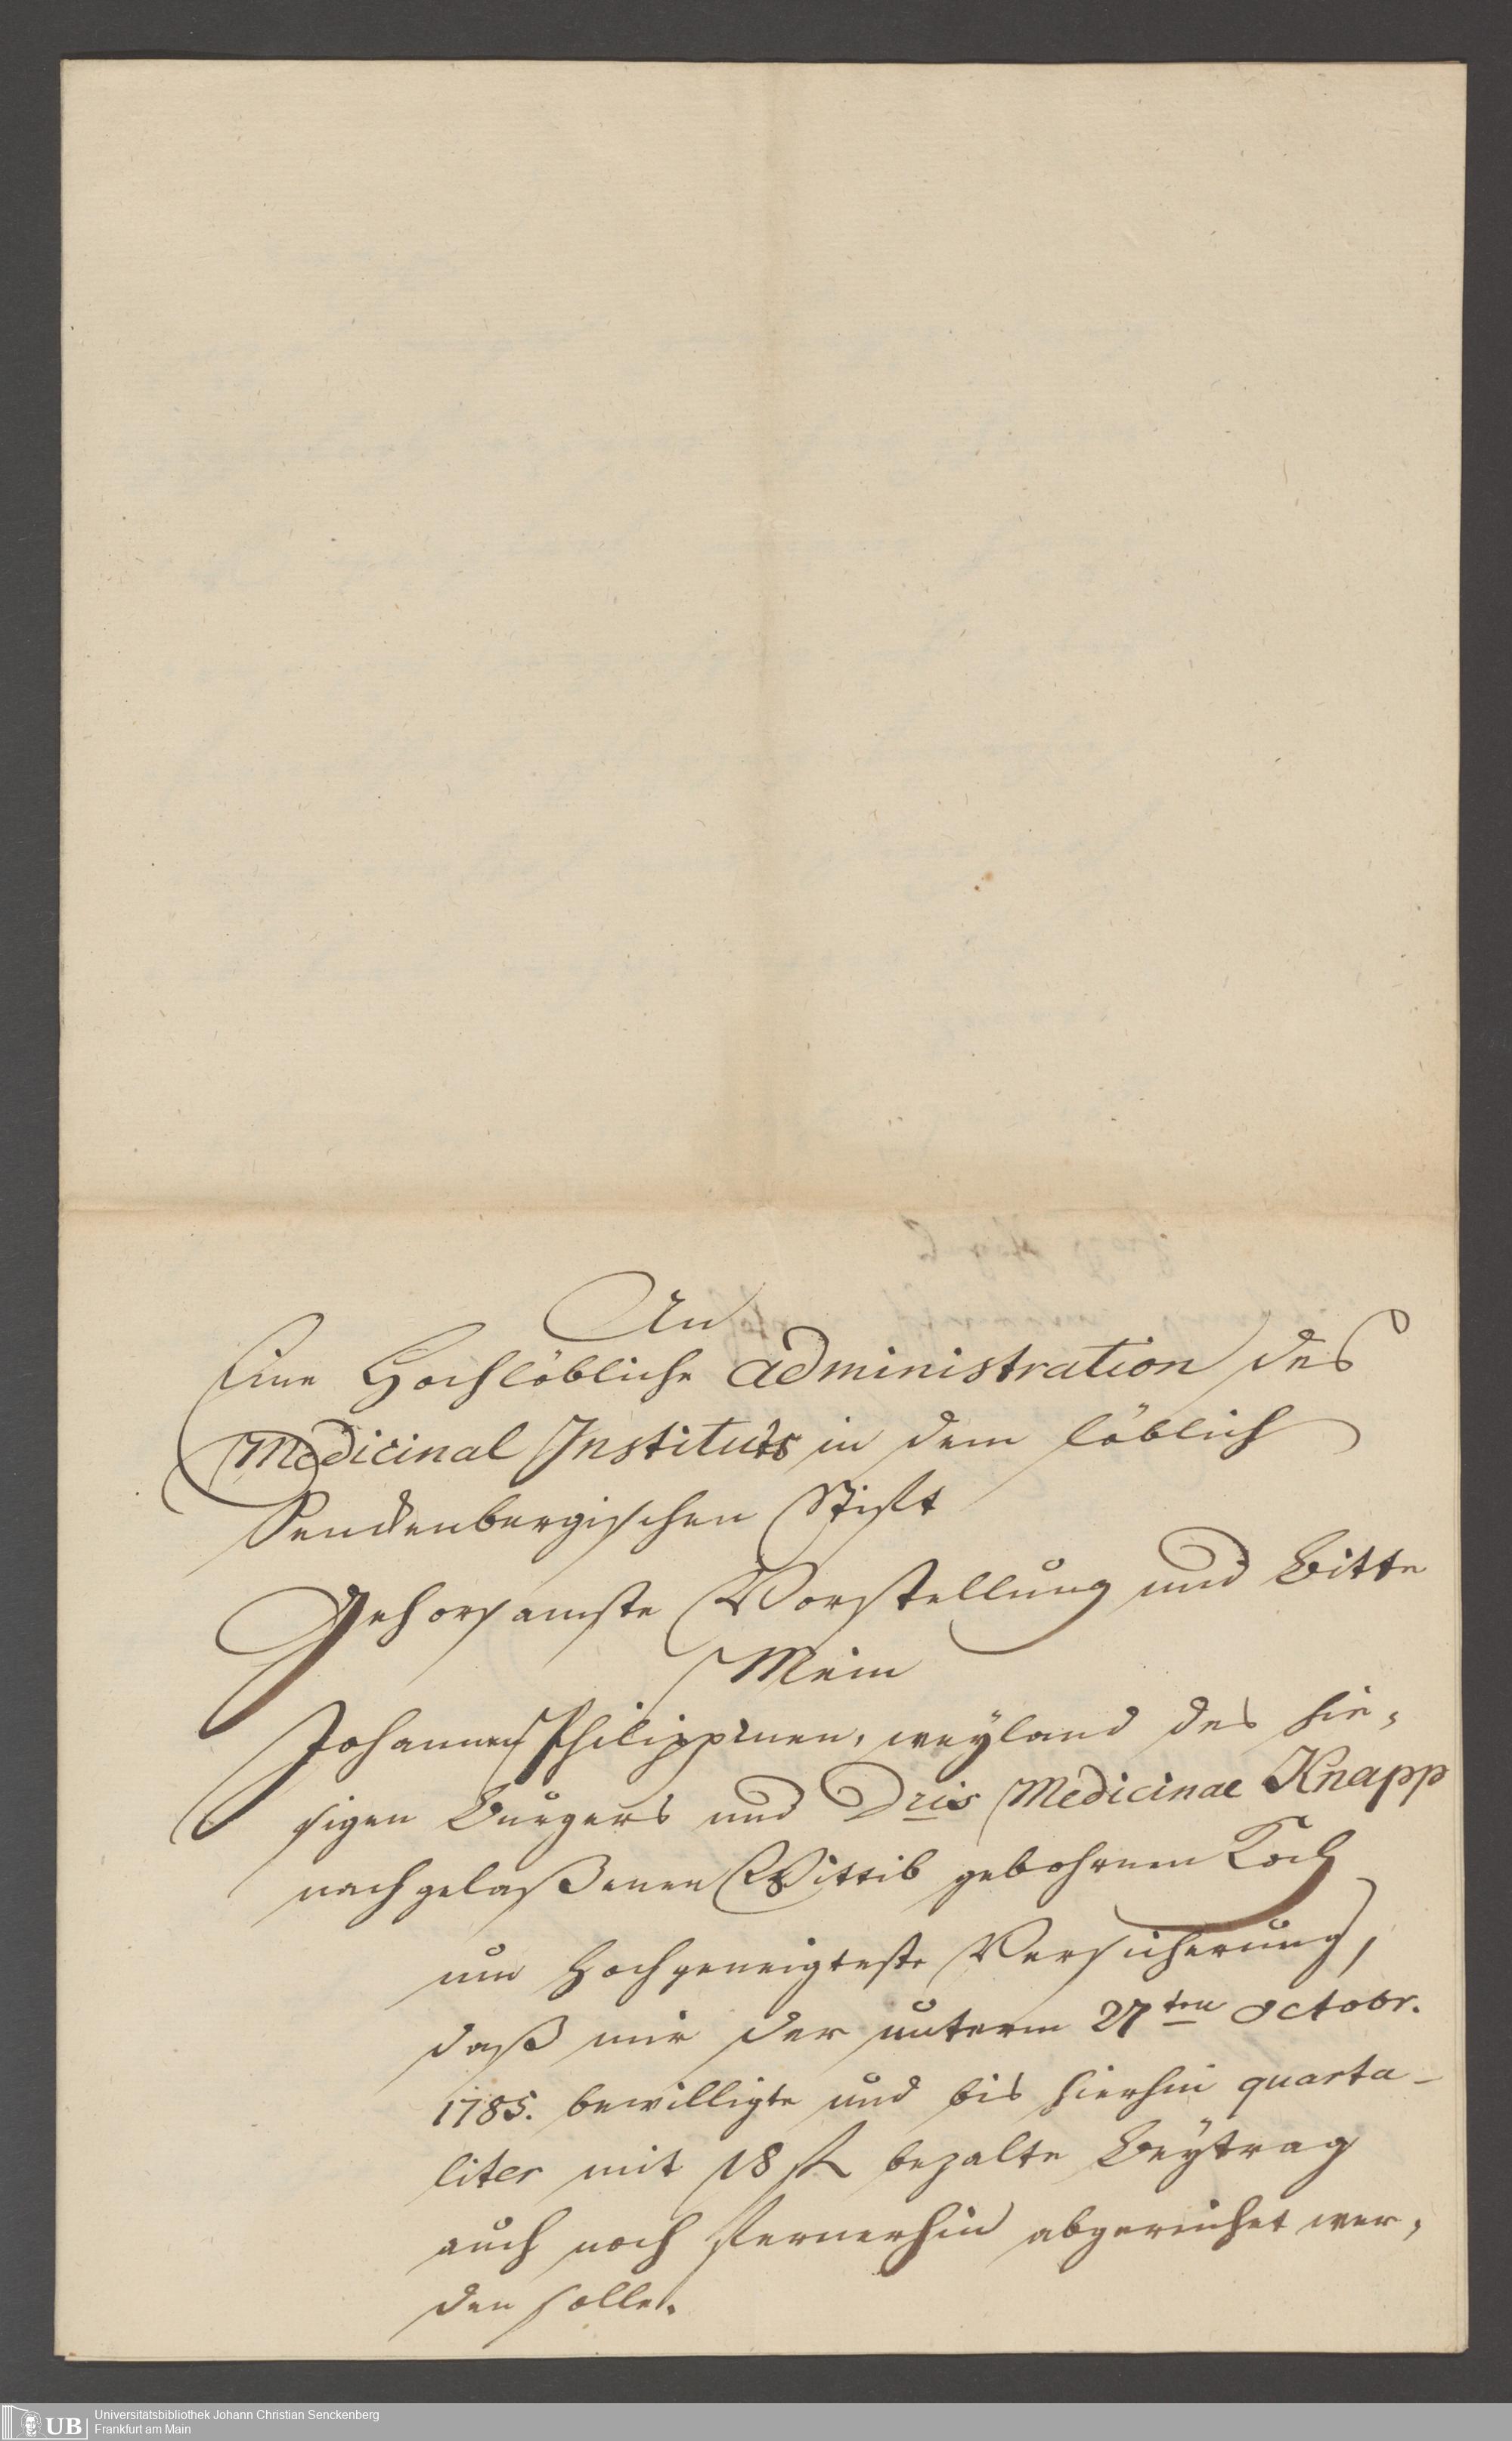 An
Eine Hochlöbliche Administration des
Medicinal Instituts in dem löblich
Senckenbergischen Stift
Gehorsamste Vorstellung und Bitte
Mein
Johannen Philippinen, weyland des hie-
sigen Burgers und Dris Medicinae Knapp
nachgelaßenen Wittib gebohrnen Koch
um Hochgeneigteste Versicherung,
daß mir der unterm 27ten Octobr.
1785. bewilligte und bis hierhin quarta-
liter mit 18 fl bezalte Beytrag
auch noch fernerhin abgereichet wer-
den solle.
UB
Universitätsbibliothek Johann Christian Senckenberg
Frankfurt am Main